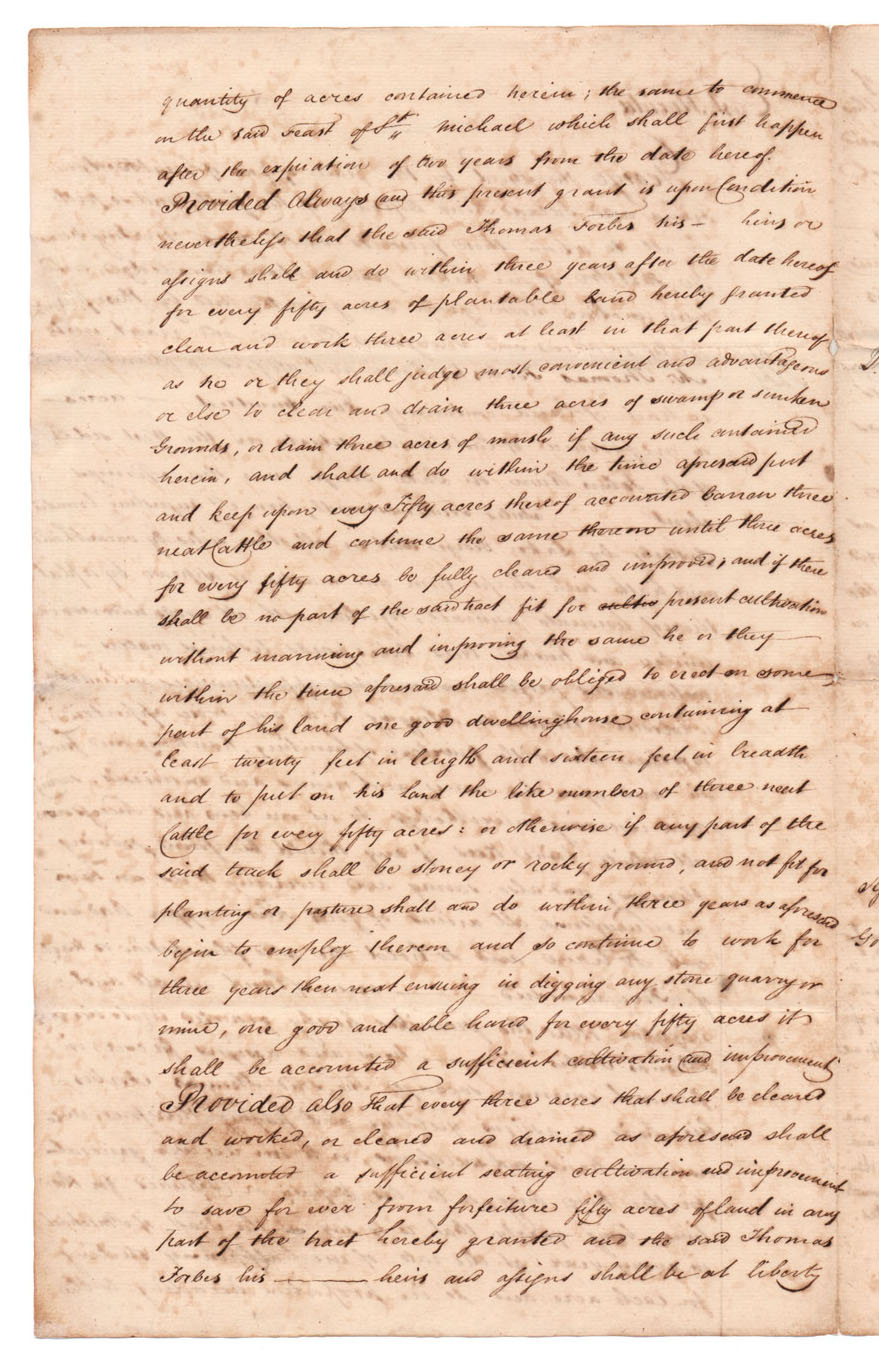 quantity of acres contained herein; the same to commence
on the said Feast of St. Michael which shall first happen
after the expiration of two years from the date hereof.
Provided Always and this present grant is upon Condition
nevertheless that the said Thomas Forbes his — heirs or
assigns shall and do within three years after the date hereof
for every fifty acres of plantable Land hereby granted
clear and work three acres at least in that part thereof
as he or they shall judge most convenient and advantageous
or else to clear and drain three acres of swamp or sunken
Grounds, or drain three acres of marsh if any such contained
herein, and shall and do within the time aforesaid put
and keep upon every Fifty acres thereof accounted barran three
neat Cattle and continue the same thereon until three acres
for every fifty acres be fully cleared and improved; and if there
shall be no part of the said tract fit for cultiv present cultivation
without manuring and improving the same he or they
within the time aforesaid shall be obliged to erect on some
part of his land one good dwellinghouse containing at
least twenty feet in length and sixteen feet in breadth
and to put on his Land the like number of three neat
Cattle for every fifty acres: or otherwise if any part of the
said track shall be stoney or rocky ground, and not fit for
planting or pasture shall and do within three years as aforesaid
begin to employ thereon and so continue to work for
three years then next ensuing in digging any stone quarry or
mine, one good and able hand for every fifty acres it
shall be accounted a sufficient cultivation and improvement
Provided also That every three acres that shall be cleared
and worked, or cleared and drained as aforesaid shall
be accounted a sufficient seating cultivation and improvement
to save for ever from forfeiture fifty acres of land in any
part of the tract hereby granted and the said Thomas
Forbes his ——— heirs and assigns shall be at liberty